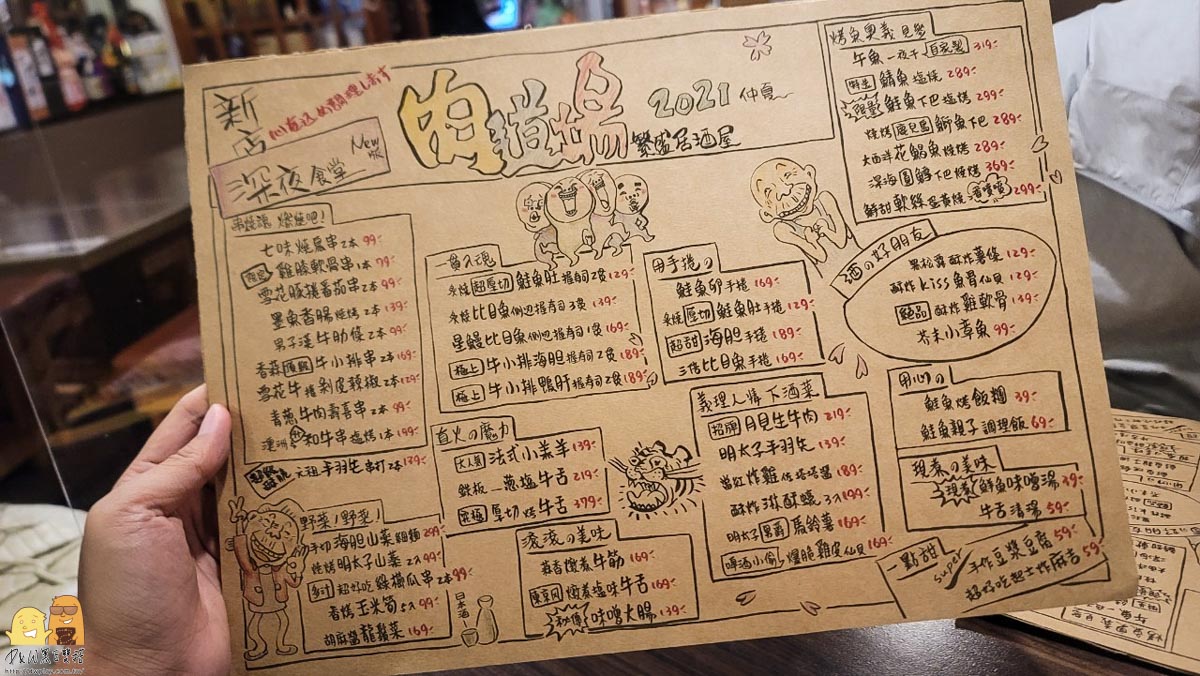 新店
深夜食堂
New版
肉道場
2021 仲夏
繁盛居酒屋
串燒魂 燃燒吧!
七味燒 串2本 99
雞膝軟骨串1本 79
雪花豚捲番茄串2本 99
墨魚香腸 燒烤2本 139
男子漢牛肋條2本 99
香蒜 牛小排串2本 169
雪花牛捲剝皮辣椒2本 129
青蔥牛肉壽喜串2本 99
澳洲和牛串塩烤1本 199
元祖手羽先串打2本 139
野菜!野菜!
手切海胆山菜細麵 249
燒烤明太子山菜2入 99
超好吃綠櫛瓜串2本 99
香烤玉米筍5入 99
胡麻醬龍鬚菜 169
一貫入魂
炙燒超厚切鮭魚肚握壽司2貫 129
炙燒比目魚側边握壽司3貫 139
星鰻比目魚側边握壽司1貫 169
極上牛小排海胆握壽司2貫 189
極上牛小排鴨肝握壽司2貫 189
直火の魔力
大人氣 法式小羔羊 139
鐵板 蔥塩牛舌 219
究極 厚切烤牛舌 379
滾滾の美味
蒜香燉煮牛筋 169
東京風 燉煮塩味牛舌 169
秘傳 味噌大腸 139
日本酒
用手捲の
鮭魚卵手捲 169
炙燒厚切鮭魚肚手捲 129
超甜 海胆手捲 189
三倍比目魚手捲 169
義理人情下酒菜
招牌 月見生牛肉 219
明太子手羽先 139
當紅炸雞佐塔塔醬 189
酥炸淋酥蠔3入 199
明太子 黑爵 馬鈴薯 169
啤酒小偷 爆脆雞皮仙貝 169
烤魚奧義見參
午魚一夜干 自家製 319
野生 鯖魚塩燒 289
限量 鮭魚下巴塩烤 299
燒烤鹿兒島鰤魚下巴 289
大西洋花鯛魚燒烤 289
深海圓鱈下巴燒烤 369
鮮甜軟絲蛋黃燒 299
酒の好朋友
黑松露酥炸薯條 129
酥炸kiss魚骨仙貝 129
絕品 酥炸雞軟骨 139
芥末小章魚 99
用心の
鮭魚烤飯糰 39
鮭魚親子調理飯 69
現煮の美味
現煮鮮魚味噌湯 39
牛舌清湯 59
一點甜
super 手作豆漿豆腐 59
超好吃起士炸麻吉 59